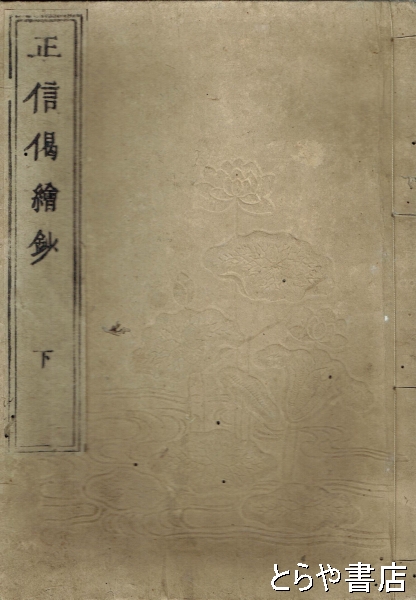 正信偈繪鈔
下
とらや書店